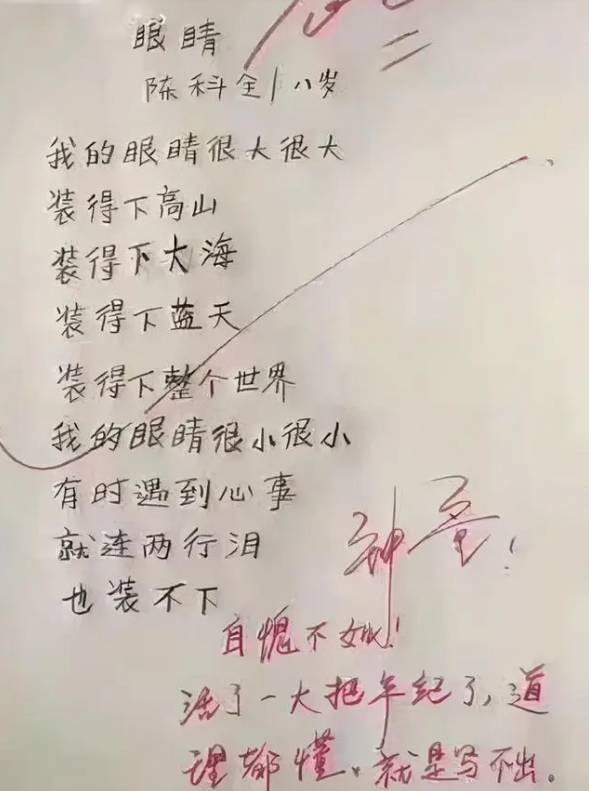 眼睛
陈科全 八岁
我的眼睛很大很大
装得下高山
装得下大海
装得下蓝天
装得下整个世界
我的眼睛很小很小
有时遇到心事
就连两行泪
也装不下
神童!
自愧不如!
活了一大把年纪了,道
理都懂,就是写不出。